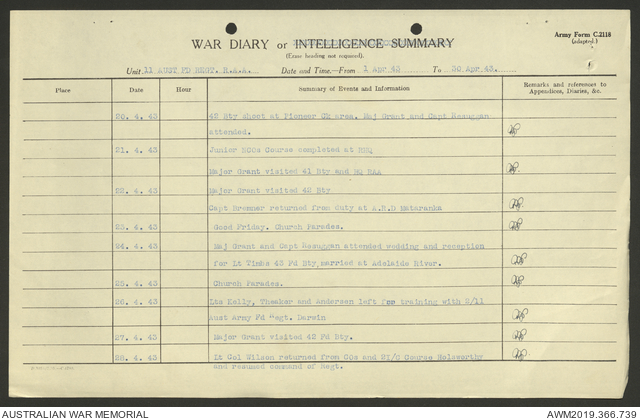 Army Form C.2118
(adapted.)
WAR DIARY or INTELLIGENCE SUMMARY
(Erase heading not required).
Unit. 11 AUST FD REGT. R.A.A. Date and Time.—From 1 Apr 43 To 30 Apr 43.
Place Date Hour Summary of Events and Information Remarks and references to
Appendices, Diaries, &c.
20. 4. 43 42 Bty shoot at Pioneer Ck area. Maj Grant and Capt
attended.
21. 4. 43 Junior NCOs Course completed at RHQ
Major Grant visited 41 Bty and HQ RAA
22. 4. 43 Major Grant visited 42 Bty
Capt Bremner returned from duty at A.R.D Mataranka
23. 4. 43 Good Friday. Church Parades.
24. 4. 43 Maj Grant and Capt attended wedding and reception
for Lt Timbs 43 Fd Bty, married at Adelaide River.
25. 4. 43 Church Parades.
26. 4. 43 Lts Kelly, Theaker and Andersen left for training with 2/11
Aust Army Fd "egt. Darwin
27. 4. 43 Major Grant visited 42 Fd Bty.
28. 4. 43 Lt Col Wilson returned from COs and 2I/C Course Holsworthy
and resumed command of Regt.
AUSTRALIAN WAR MEMORIAL AWM2019.366.739